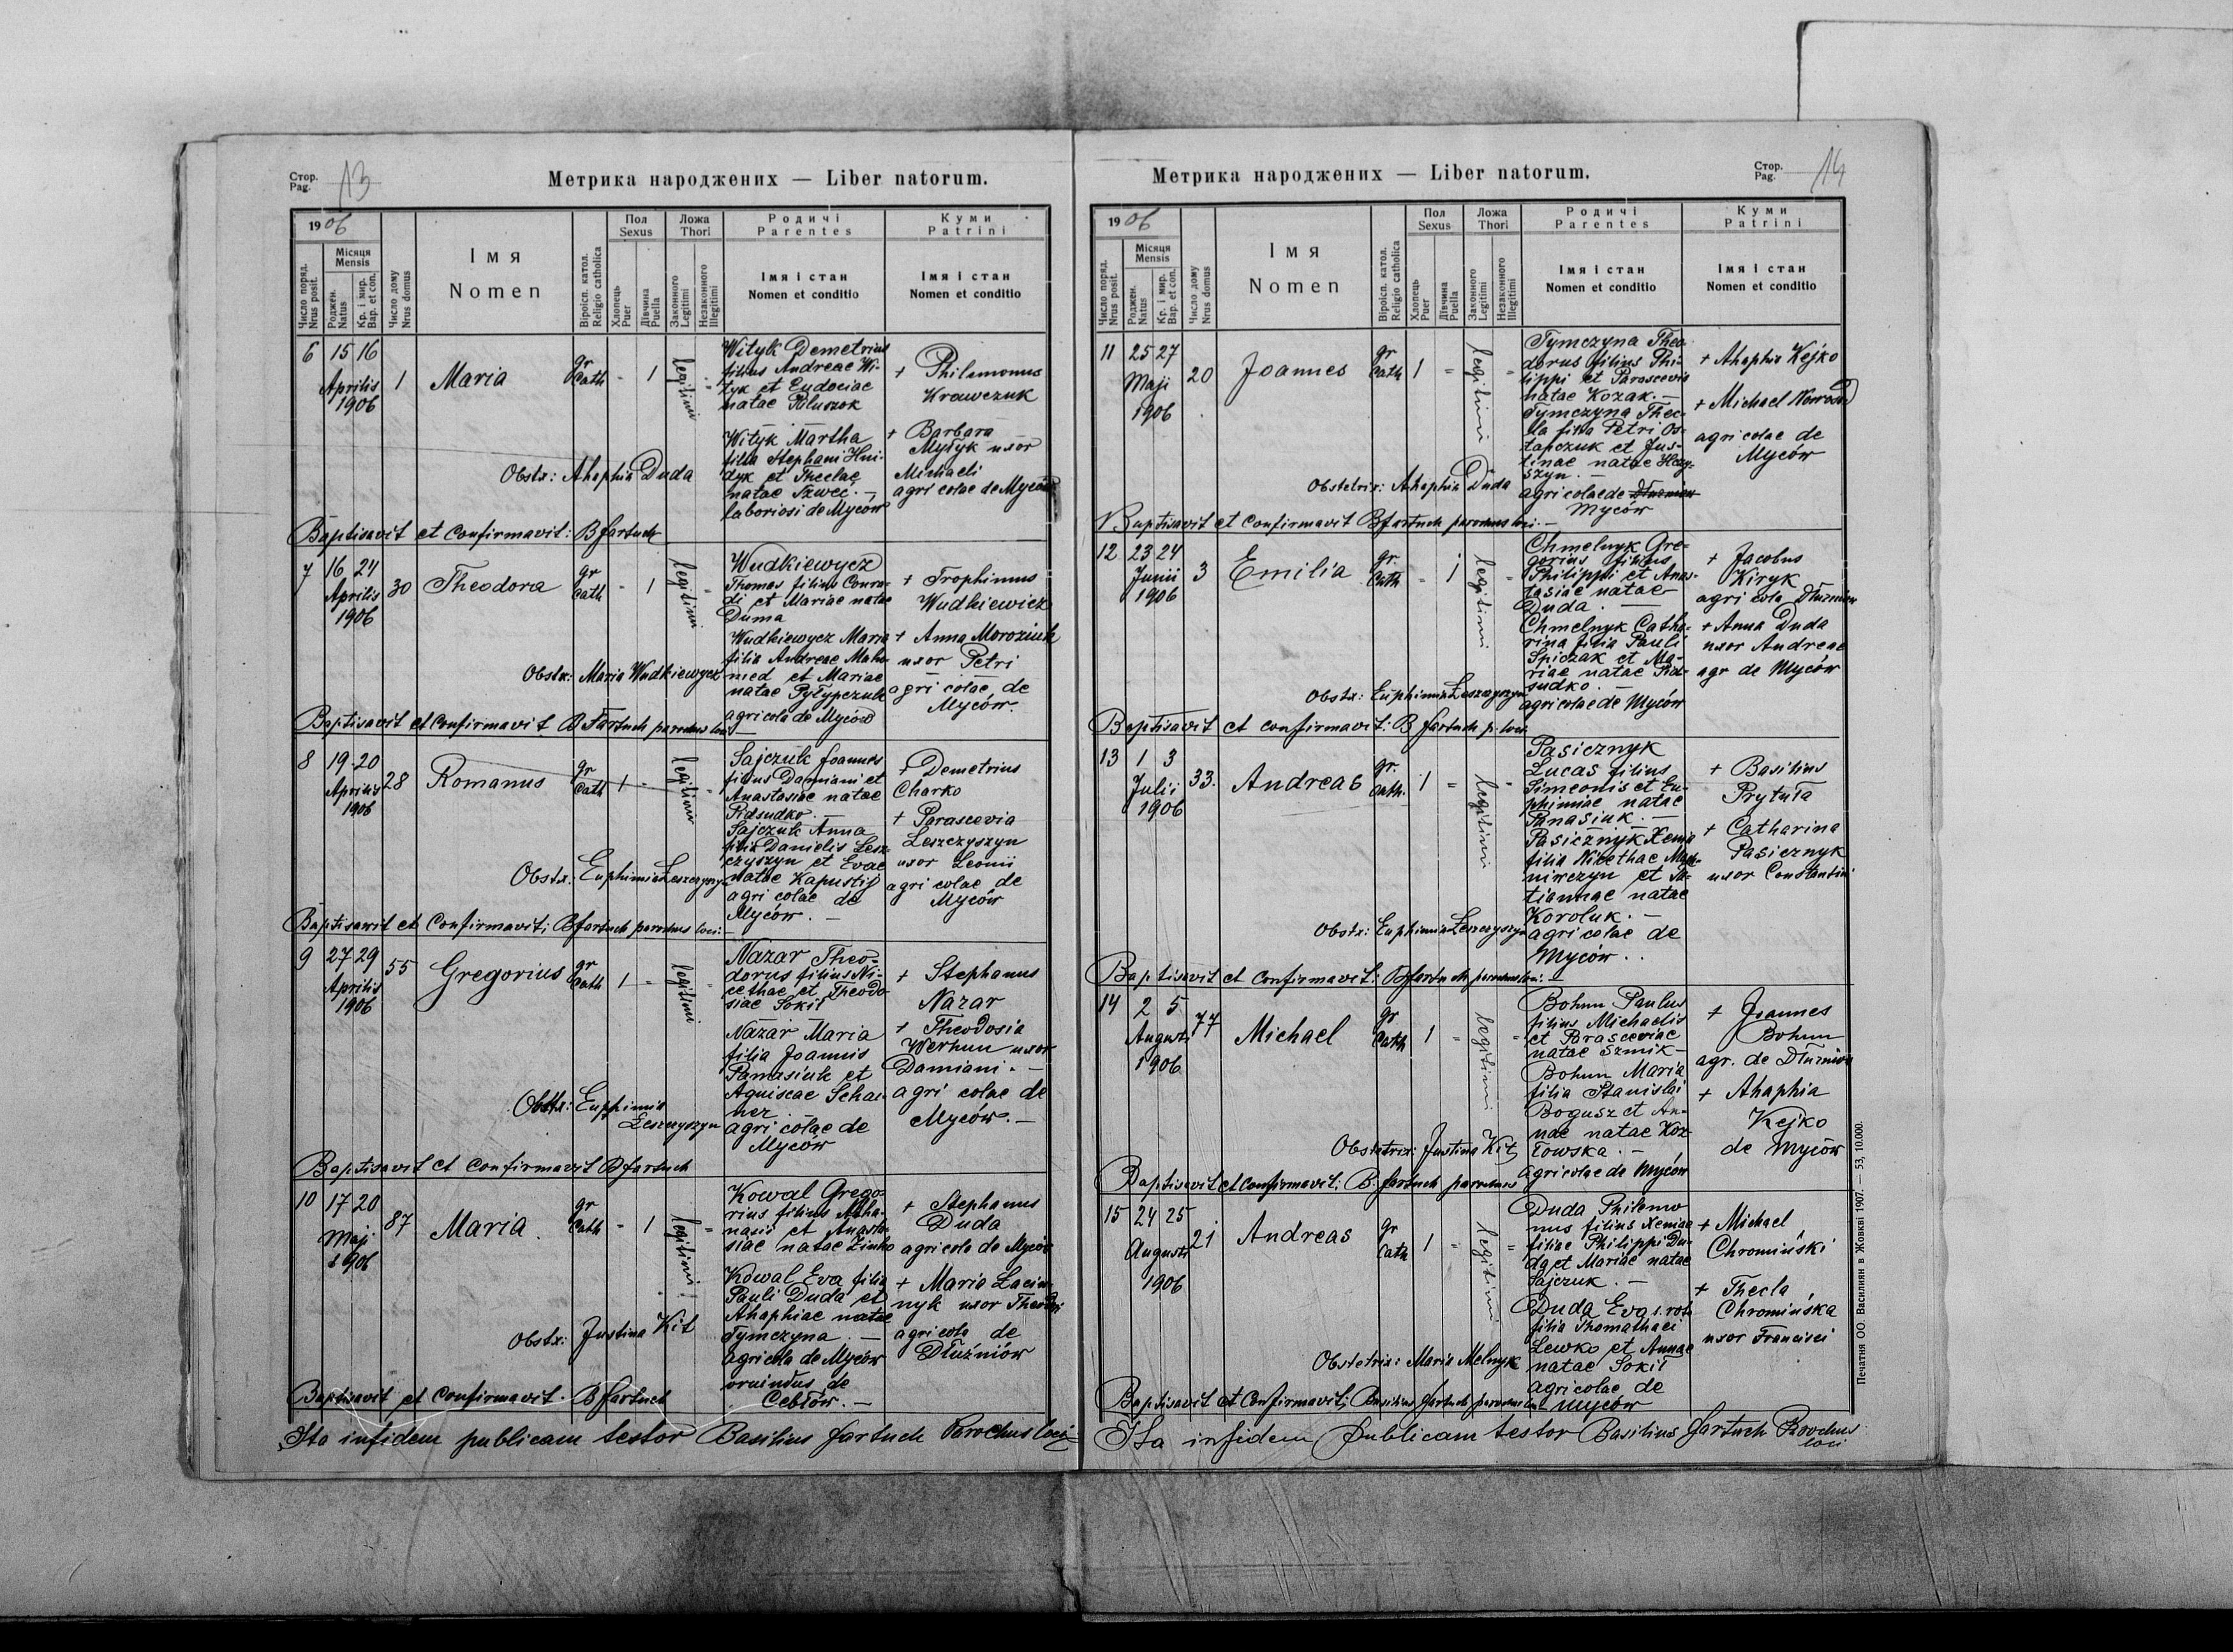 Стор.
Pag. 13
Метрика народжених — Liber natorum.
1906
Число поряд.
Nrus posit.
Місяця
Mensis
Роджен.
Natus
Кр. і мир.
Bap. et con.
Число дому
Nrus domus
Імя
Nomen
Віроісп. катол.
Religio catholica
Пол
Sexus
Хлопець
Puer
Дівчина
Puella
Ложа
Thori
Законного
Legitimi
Незаконного
Illegitimi
Родичі
Parentes
Імя і стан
Nomen et conditio
Куми
Patrini
Імя і стан
Nomen et conditio
6 15 16
Aprilis
1906
1 Maria
gr
Cath - 1 legitimi
Wityk Demetrius
filius Andreae Wi-
tyk et Eudociae
natae
Wityk Martha
filia Stephani Hni-
dyk et Theclae
natae Szwec. —
laboriosi de Myców
+ Philemonus
Krawczuk
+ Barbara
Mytyk uxor
Michaeli
agricolae de Myców
Obstx: Ahaphia Duda
Baptisavit et Confirmavit: B fartuch
7 16 24
Aprilis
1906
30 Theodora
gr
Cath - 1 legitimi
Wudkiewycz
Thomas filius Conra-
di et Mariae natae
Duma
Wudkiewycz Maria
filia Andreae Maho-
med et Mariae
natae Pyłypczuk
agricola de Myców
+ Trophimus
Wudkiewicz
+ Anna Moroziuk
uxor Petri
agricolae de
Myców.
Obstx: Maria Wudkiewycz
Baptisavit et Confirmavit B Fartuch parochus loci
8 19 20
Aprilis
1906
28 Romanus
gr
Cath 1 - legitimi
Sajczuk Joannes
filius Damiani et
Anastasiae natae
Pidsudko. —
Sajczuk Anna
filia Danielis Lesz-
czyszyn et Evae
natae Kapustij
agricolae de
Myców. —
+ Demetrius
Charko
+ Parascevia
Leszczyszyn
uxor Leonii
agricolae de
Myców
Obstx: Euphimia Leszczyszyn
Baptisavit et Confirmavit: B fartuch parochus loci —
9 27 29
Aprilis
1906
55 Gregorius
gr
Cath 1 - legitimi
Nazar Theo-
dorus filius Ni-
cethae et Theodo-
siae Sokił
Nazar Maria
filia Joannis
Panasiuk et
Agniscae Schai-
ner.
agricolae de
Myców
+ Stephanus
Nazar
+ Theodosia
Werhun uxor
Damiani. —
agricolae de
Myców. —
Obstx: Euphimia
Leszczyszyn
Baptisavit et Confirmavit B fartuch
10 17 20
Maji
1906
87 Maria.
gr
Cath - 1 legitimi
Kowal Grego-
rius filius Atha-
nasii et Anasta-
siae natae Zinko
Kowal Eva filia
Pauli Duda et
Ahaphiae natae
Tymczyna. —
agricola de Myców
oruindus de
Cebłów. —
+ Stephanus
Duda
agricola de Myców
+ Maria
nyk uxor Theodori
agricola de
Dłużniów
Obstx: Justina Kit
Baptisavit et Confirmavit. B fartuch
Ita infidem publicam testor Basilius fartuch Parochus loci
Стор.
Pag. 14
Метрика народжених — Liber natorum.
1906
Число поряд.
Nrus posit.
Місяця
Mensis
Роджен.
Natus
Кр. і мир.
Bap. et con.
Число дому
Nrus domus
Імя
Nomen
Віроісп. катол.
Religio catholica
Пол
Sexus
Хлопець
Puer
Дівчина
Puella
Ложа
Thori
Законного
Legitimi
Незаконного
Illegitimi
Родичі
Parentes
Імя і стан
Nomen et conditio
Куми
Patrini
Імя і стан
Nomen et conditio
11 25 27
Maji
1906
20 Joannes
gr
Cath 1 " legitimi
Tymczyna Theo-
dorus filius Phi-
lippi et Parascevia
natae Kozak. —
Tymczyna Thec-
la filia Petri Os-
tapczuk et Jus-
tinae natae
szyn. —
agricolae de Dłużniów
Myców
+ Ahaphia Kejko
+ Michael
agricolae de
Myców
Obstetrix: Ahaphia Duda
Baptisavit et Confirmavit B fartuch parochus loci —
12 23 24
Junii
1906
3 Emilia
gr
Cath - 1 legitimi
Chmelnyk Gre-
gorius filius
Philippi et Anas-
tasiae natae
Duda. —
Chmelnyk Catha-
rina filia Pauli
Spiczak et Ma-
riae natae Pid-
sudko. —
agricolae de Myców
+ Jacobus
Kiryk
agricola Dłużniów
+ Anna Duda
uxor Andreae
agr de Myców
Obstx: Euphimia Leszczyszyn
Baptisavit et confirmavit: B fartuch p. loci
13 1 3
Julii
1906
33. Andreas
gr.
Cath. 1 = legitimi
Pasicznyk
Lucas filius
Simeonis et Eu-
phimiae natae
Panasiuk. —
Pasicznyk Xenia
filia Nicethae
niwczyn et Ta-
tiannae natae
Koroluk. —
agricolae de
Myców..
+ Basilius
Prytuła
+ Catharina
Pasicznyk
uxor Constantini
Obstx: Euphimia Leszczyszyn
Baptisavit et Confirmavit: B fartuch parochus loci: —
14 2 5
Augusti
1906
77 Michael
gr
Cath 1 " legitimi =
Bohun Paulus
filius Michaelis
et Parasceviae
natae Szmik —
Bohun Maria
filia Stanislai
Bogusz et An-
nae natae Koz-
łowska. —
agricolae de Myców
+ Joannes
Bohun
agr. de Dłużniów
+ Ahaphia
Kejko
de Myców
Obstetrix: Justina Kit
Baptisavit et Confirmavit: B. fartuch parochus
15 24 25
Augusti
1906
21 Andreas
gr
Cath 1 = legitimi =
Duda Philemo-
nus filius Xeniae
filiae Philippi Du-
da et Mariae natae
Sajczuk. —
Duda Eva 1. voti
filia Thomathaei
Lewko et Annae
natae Sokił
agricolae de
Myców
+ Michael
Chromiński
+ Thecla
Chromińska
uxor Francisci
Obstetrix: Maria Melnyk
Baptisavit et Confirmavit: Basilius fartuch parochus loci
Ita infidem publicam testor Basilius fartuch Parochus
loci
Печатня ОО. Василиян в Жовкві 1907. — 53, 10.000.